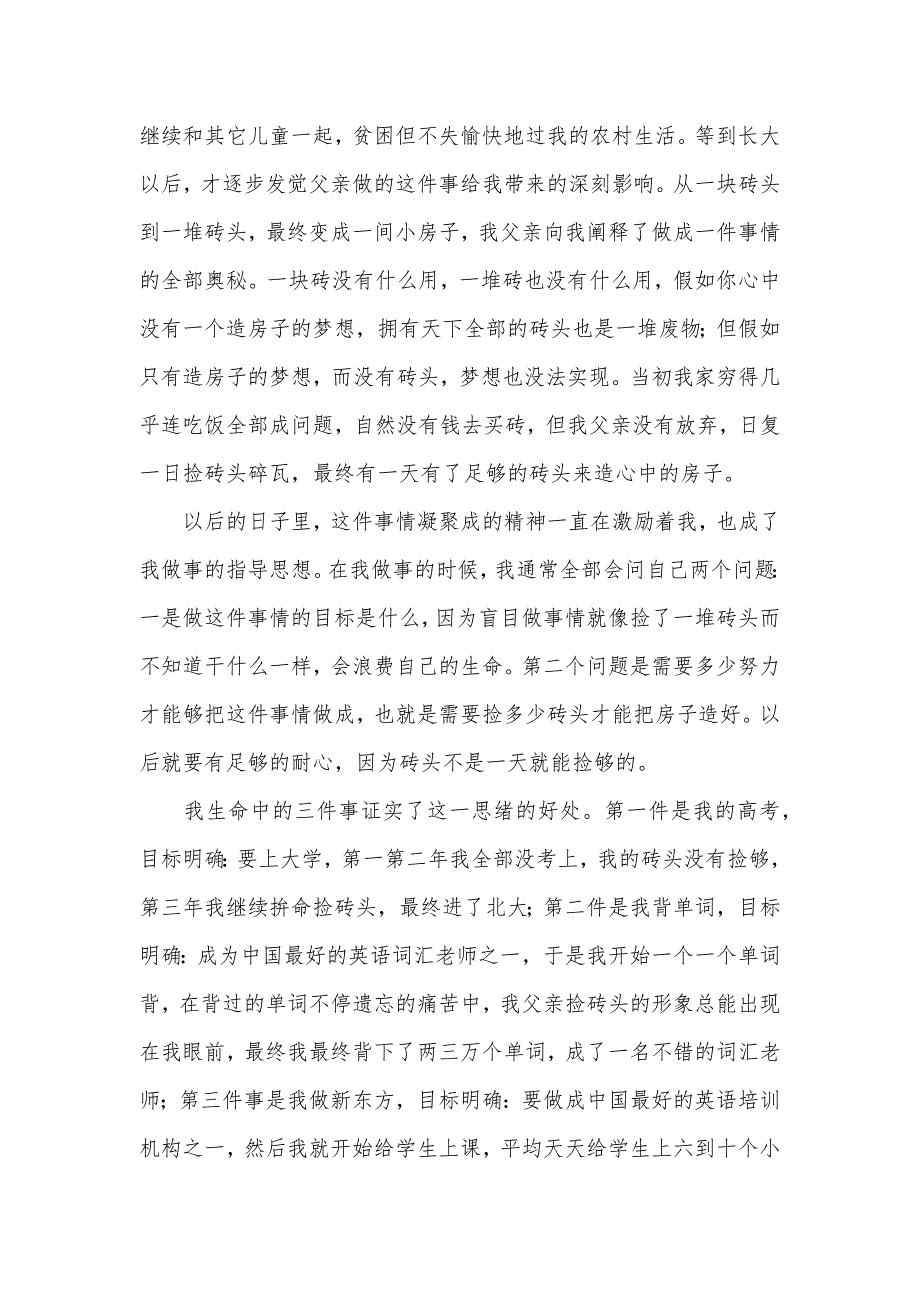 继续和其它儿童一起，贫困但不失愉快地过我的农村生活。等到长大
以后，才逐步发觉父亲做的这件事给我带来的深刻影响。从一块砖头
到一堆砖头，最终变成一间小房子，我父亲向我阐释了做成一件事情
的全部奥秘。一块砖没有什么用，一堆砖也没有什么用，假如你心中
没有一个造房子的梦想，拥有天下全部的砖头也是一堆废物；但假如
只有造房子的梦想，而没有砖头，梦想也没法实现。当初我家穷得几
乎连吃饭全部成问题，自然没有钱去买砖，但我父亲没有放弃，日复
一日捡砖头碎瓦，最终有一天有了足够的砖头来造心中的房子。
以后的日子里，这件事情凝聚成的精神一直在激励着我，也成了
我做事的指导思想。在我做事的时候，我通常全部会问自己两个问题：
一是做这件事情的目标是什么，因为盲目做事情就像捡了一堆砖头而
不知道干什么一样，会浪费自己的生命。第二个问题是需要多少努力
才能够把这件事情做成，也就是需要捡多少砖头才能把房子造好。以
后就要有足够的耐心，因为砖头不是一天就能捡够的。
我生命中的三件事证实了这一思绪的好处。第一件是我的高考，
目标明确：要上大学，第一第二年我全部没考上，我的砖头没有捡够，
第三年我继续拚命捡砖头，最终进了北大；第二件是我背单词，目标
明确：成为中国最好的英语词汇老师之一，于是我开始一个一个单词
背，在背过的单词不停遗忘的痛苦中，我父亲捡砖头的形象总能出现
在我眼前，最终我最终背下了两三万个单词，成了一名不错的词汇老
师；第三件事是我做新东方，目标明确：要做成中国最好的英语培训
机构之一，然后我就开始给学生上课，平均天天给学生上六到十个小